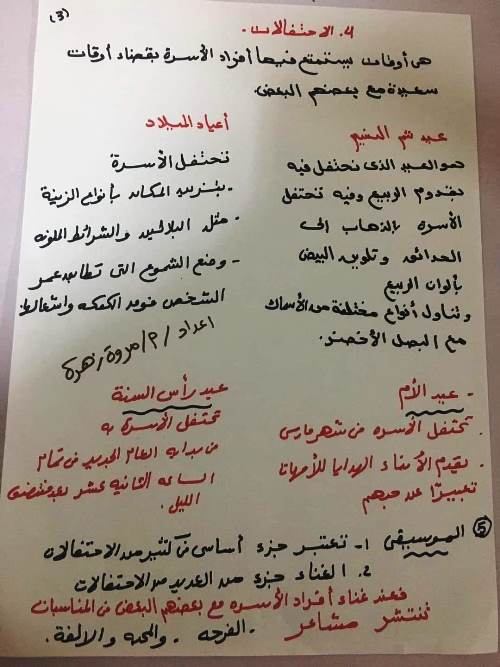 (3)
4. الاحتفالات.
هى أوقات يستمتع فيها أفراد الأسرة بقضاء أوقات
سعيدة مع بعضهم البعض.
عيد شم النسيم
هو العيد الذى نحتفل فيه
بقدوم الربيع وفيه تحتفل
الأسره بالذهاب إلى
الحدائق وتلوين البيض
بألوان الربيع
وتناول أنواع مختلفة من الأسماك
مع البصل الأخضر.
أعياد الميلاد
تحتفل الأسرة
- بتزيين المكان بأنواع الزينة
مثل البلالين والشرائط الملونه
- وضع الشموع التى تطابق عمر
الشخص فوق الكعكه واشعالها
اعداد / م / مروة زهرة
- عيد الأم
تحتفل الأسره فى شهر مارس
. يقدم الأبناء الهدايا للأمهات
تعبيرًا عن حبهم
عيد رأس السنة
تحتفل الأسرة به
من بداية العام الجديد فى تمام
الساعه الثانية عشر بعد منتصف
الليل.
5 الموسيقى 1- تعتبر جزء أساسى فى كثير من الاحتفالات
2. الغناء جزء من العديد من الاحتفالات
فعند غناء أفراد الأسره مع بعضهم البعض فى المناسبات
تنتشر مشاعر - الفرحه - والمحبه والالفة.